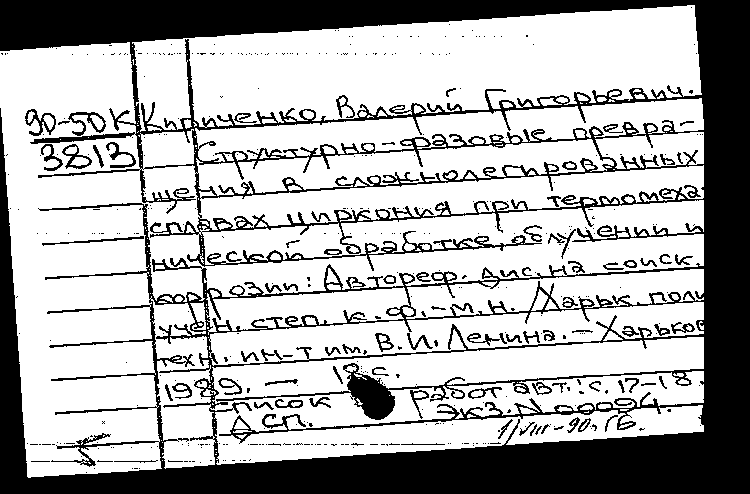 90-50К Кириченко, Валерий Григорьевич.
3813 Структурно-фазовые превра-
щения в сложнолегированных
сплавах циркония при термомеха-
нической обработке, облучении и
коррозии: Автореф. дис. на соиск.
учен. степ. к. ф.-м. н. /Харьк. поли
техн. ин-т им. В.И. Ленина. - Харьков
1989. - 18 с.
Список работ авт.: с. 17-18.
ДСП. Экз. N 00094.
1/VIII-90г.